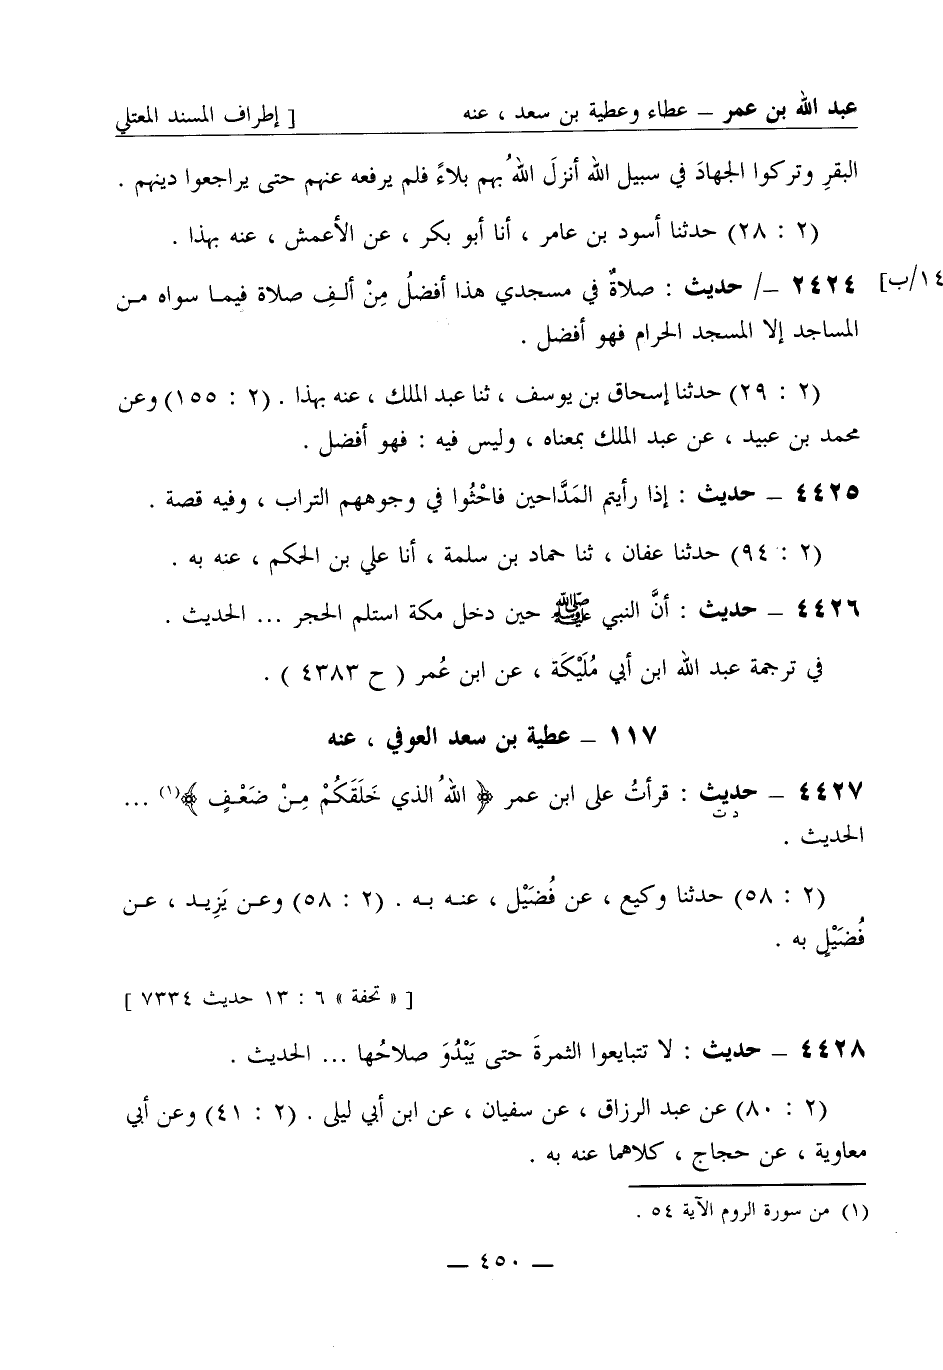 عبد الله بن عمر – عطاء وعطية بن سعد ، عنه [ إطراف المسند المعتلي
البقرِ وتركوا الجهادَ في سبيل الله أنزلَ اللهُ بهم بلاءً فلم يرفعه عنهم حتى يراجعوا دينهم .
(٢ : ٢٨) حدثنا أسود بن عامر ، أنا أبو بكر ، عن الأعمش ، عنه بهذا .
١٤/ب]
٢٤٢٤ –/ حديث : صلاةٌ في مسجدي هذا أفضلُ مِنْ ألفِ صلاة فيما سواه من
المساجد إلا المسجد الحرام فهو أفضل .
(٢ : ٢٩) حدثنا إسحاق بن يوسف ، ثنا عبد الملك ، عنه بهذا . (٢ : ١٥٥) وعن
محمد بن عبيد ، عن عبد الملك بمعناه ، وليس فيه : فهو أفضل .
٤٤٢٥ – حديث : إذا رأيتم المَدَّاحين فاحْثُوا في وجوههم التراب ، وفيه قصة .
(٢ : ٩٤) حدثنا عفان ، ثنا حماد بن سلمة ، أنا علي بن الحكم ، عنه به .
٤٤٢٦ – حديث : أنَّ النبي ﷺ حين دخل مكة استلم الحجر ... الحديث .
في ترجمة عبد الله ابن أبي مُلَيْكَة ، عن ابن عُمر ( ح ٤٣٨٣ ) .
١١٧ – عطية بن سعد العوفي ، عنه
٤٤٢٧ – حديث : قرأتُ على ابن عمر ﴿ اللهُ الذي خَلَقَكُمْ مِنْ ضَعْفٍ ﴾(١) ...
د ت
الحديث .
(٢ : ٥٨) حدثنا وكيع ، عن فُضَيْل ، عنه به . (٢ : ٥٨) وعن يَزِيد ، عن
فُضَيْلٍ به .
[ « تحفة » ٦ : ١٣ حديث ٧٣٣٤ ]
٤٤٢٨ – حديث : لا تتبايعوا الثمرةَ حتى يَبْدُوَ صلاحُها ... الحديث .
(٢ : ٨٠) عن عبد الرزاق ، عن سفيان ، عن ابن أبي ليلى . (٢ : ٤١) وعن أبي
معاوية ، عن حجاج ، كلاهما عنه به .
(١) من سورة الروم الآية ٥٤ .
– ٤٥٠ –